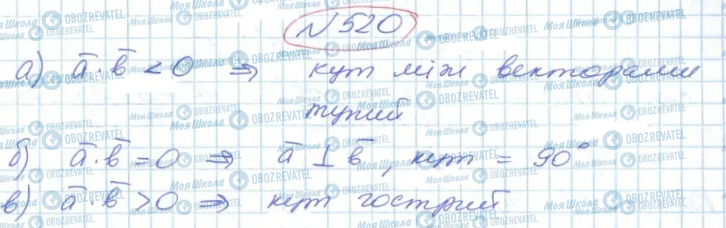 №520
а) a̅ · b̅ < 0 ⇒ кут між векторами
тупий
б) a̅ · b̅ = 0 ⇒ a̅ ⊥ b̅, кут = 90°
в) a̅ · b̅ > 0 ⇒ кут гострий
Моя Школа OBOZREVATEL